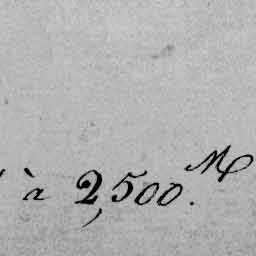 à 2,500. M